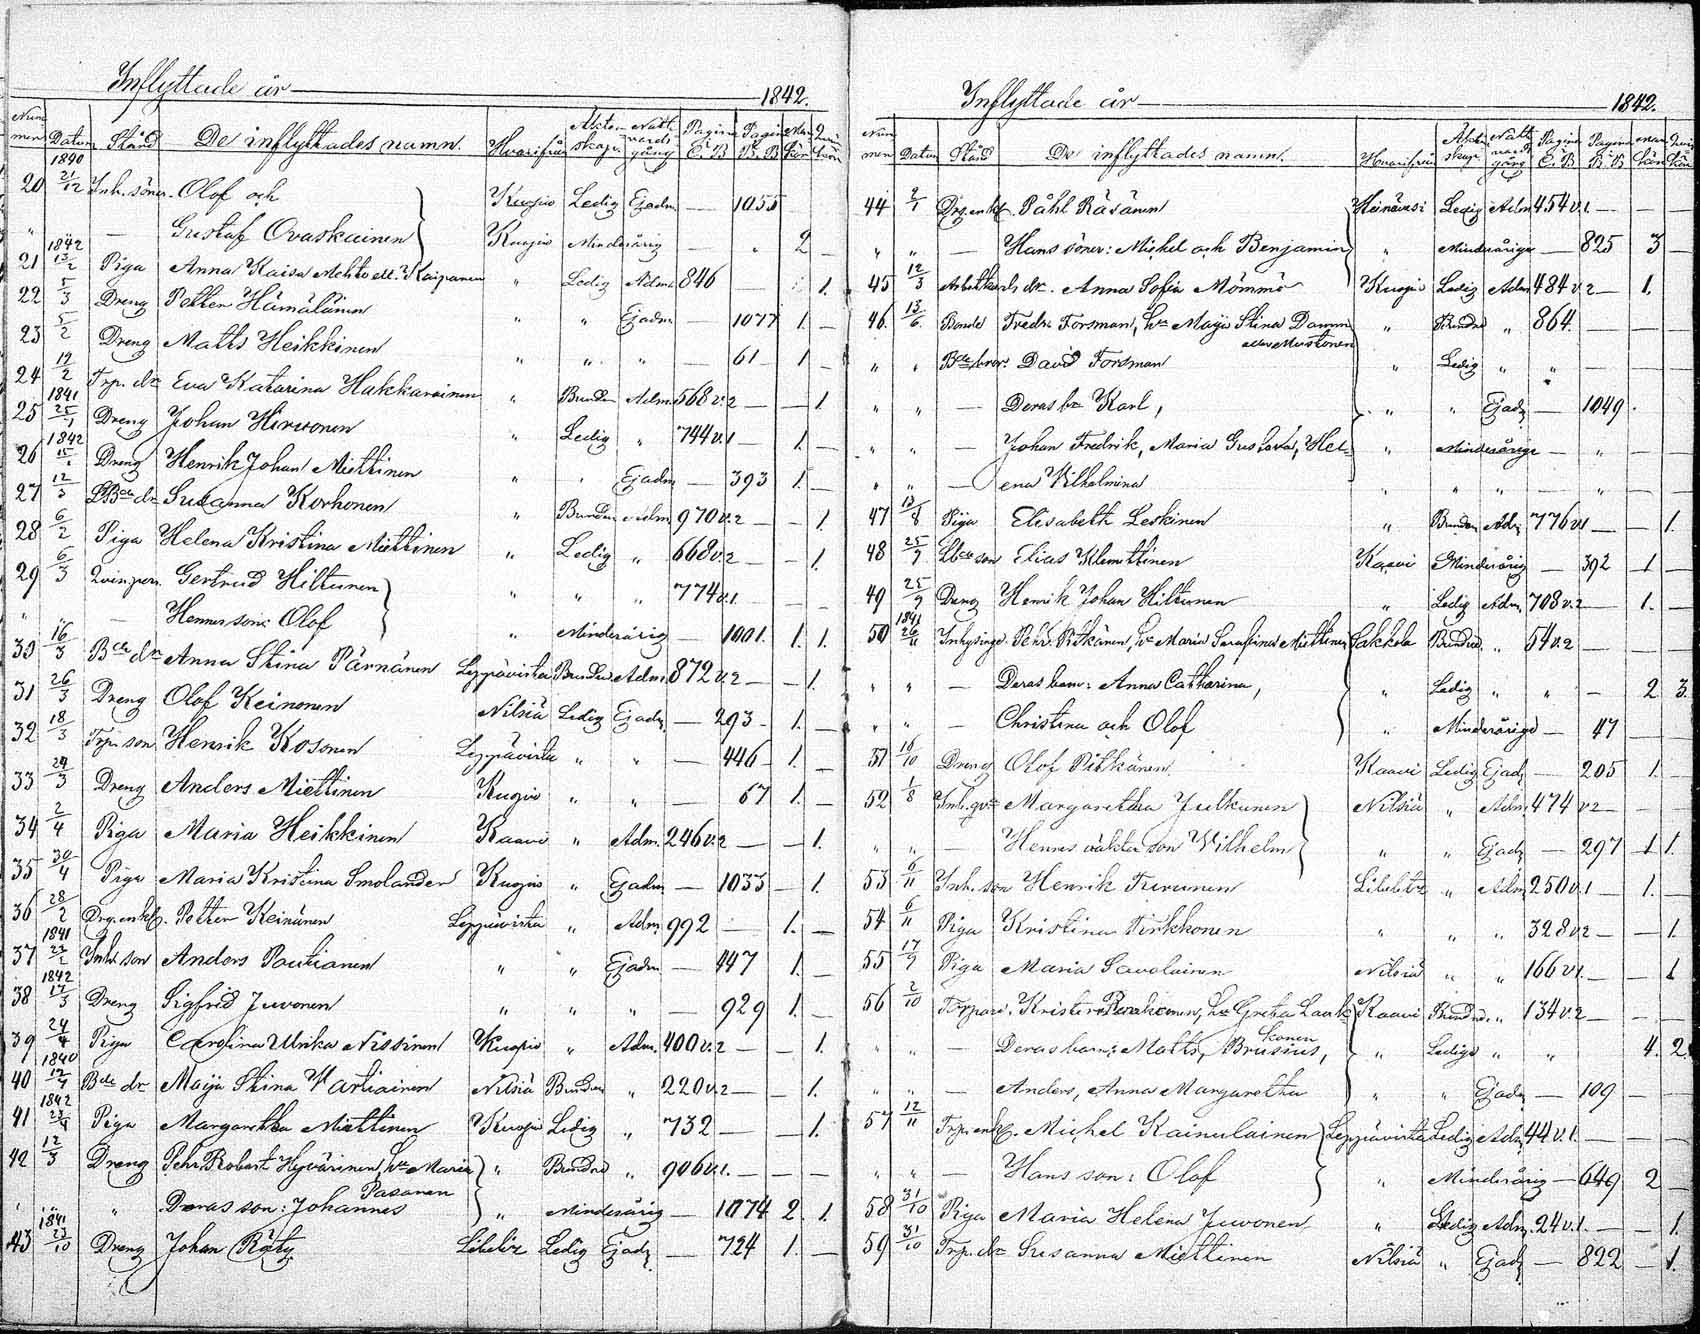 Inflyttade år 1842.
Num men Datum Stånd De inflyttades namn. Hvarifrån Äkten skap. Natt vards gång Pagina C. B Pagina B. B Man kön Qvin kön
1840
20 21/12 Inh. söner Olof och Kuopio Ledig Ejadm — 1055
" — Gustaf Ovaskainen Kuopio Minderårig — " 2 —
1842
21 13/2 Piga Anna Kaisa Mehto ell. Kaipanen " Ledig Adm. 846 — 1.
22 5/3 Dreng Petter Hämäläinen " " Ejadm — 1077 1. —
23 5/2 Dreng Matts Heikkinen " " " — 61 1 —
24 12/2 Trp. dr Eva Katarina Hakkarainen " Bunden Adm. 568 v. 2 — — 1.
1841
25 25/1 Dreng Johan Hirvonen " Ledig " 744 v. 1 — 1. —
1842
26 15/1 Dreng Henrik Johan Miettinen " " Ejadm — 393 1. —
27 12/3 Susanna Korhonen " Bunden Adm 970 v. 2 — — 1.
28 6/2 Piga Helena Kristina Miettinen " Ledig " 668 v. 2 — — 1.
29 6/3 Qvin. pers. Gertrud Hiltunen " " " 774 v. 1. — —
" — Hennes son: Olof " Minderårig — 1001. 1. 1.
30 16/3 Bde dr Anna Stina Pärnänen Leppävirta Bunden Adm. 872 v. 2 — — 1.
31 26/3 Dreng Olof Keinonen Nilsiä Ledig Ejadm — 293 — 1. —
32 18/3 Trp. son Henrik Kosonen Leppävirta " " — 446 1. —
33 29/3 Dreng Anders Miettinen Kuopio " " — 67 1. —
34 2/4 Piga Maria Heikkinen Kaavi " Adm. 246 v. 2 — — 1.
35 30/4 Piga Maria Kristina Smolander Kuopio " Ejadm — 1033 — 1.
36 28/2 Drg. enkl. Petter Keinänen Leppävirta " Adm. 992 — 1. —
1841
37 22/2 Inh. son Anders Pautianen " " Ejadm — 447 1. —
1842
38 12/3 Dreng Sigfrid Juvonen " " " — 929 1. —
39 24/4 Piga Carolina Ulrika Nissinen Kuopio " Adm. 400 v. 2 — — 1.
1840
40 12/4 Bde dr Maija Stina Vartiainen Nilsiä Bunden " 220 v. 2 — — 1.
1842
41 23/4 Piga Margaretha Miettinen Kuopio Ledig " 732 — — 1.
42 12/3 Dreng Pehr Robert Hyvärinen, h. Maria " Bundne " 906 v. 1. — —
Pasanen
" " Deras son: Johannes " Minderårig — 1074 2. 1.
1841
43 23/10 Dreng Johan Räty Libelitz Ledig Ejadm — 724 1. —
Inflyttade år 1842.
Num men Datum Stånd De inflyttades namn. Hvarifrån Äkten skap. Natt vards gång Pagina C. B Pagina B. B Man kön Qvin kön
44 2/1 Drg. enkl. Påhl Räsänen Heinävesi Ledig Adm 454 v. 1. — —
" " — Hans söner: Mickel och Benjamin " Minderåriga — 825 3 —
45 12/3 Anna Sofia Mömmö Kuopio Ledig Adm 484 v. 2 — 1.
46. 13/6 Bonde Fredr. Forsman, h. Maija Stina Damm " Bundne " 864. — —
eller Mustonen
" " Bde bror David Forsman " Ledig " " —
" " — Deras bn Karl, " " Ejadm — 1049.
" " — Johan Fredrik, Maria Gustava, Hel- " Minderårige — " —
" " — ena Vilhelmina " " " — " —
47 13/8 Piga Elisabeth Leskinen " Bunden Adm 776 v. 1 — — 1.
48 25/9 Bde son Elias Klemettinen Kaavi Minderårig — 392 1 —
49 25/9 Dreng Henrik Johan Hiltunen " Ledig Adm. 708 v. 2 — 1. —
1841
50 26/11 Inhysing. Pehr Pitkänen, h. Maria Serafina Miettinen Sakkola Bundne " 54 v. 2
" " — Deras barn: Anna Catharina, " Ledig " " — 2 3.
" " — Christina och Olof " Minderårige — 47
51 16/10 Dreng Olof Pitkänen Kaavi Ledig Ejadm — 205 1. —
52 1/8 Margaretha Julkunen Nilsiä " Adm. 474 v. 2 — —
" " — Hennes oäkta son Wilhelm " " Ejadm — 297 1. 1.
53 6/11 Inh. son Henrik Turunen Libelitz " Adm 250 v. 1 — 1. —
54 6/11 Piga Kristina Pirkkonen " " " 328 v. 2 — — 1.
55 17/9 Piga Maria Savolainen Nilsiä " " 166 v. 1. — — 1
56 2/10 Torpare. Krister h. Greta Laak- Kaavi Bundne. " 134 v. 2 — —
konen
" " — Deras barn: Matts, Brusius, " Ledige " " 4. 2
" " — Anders, Anna Margaretha " " Ejadm — 109 —
57 12/11 Trp. enkl. Michel Kainulainen Leppävirta Ledig Adm 44 v. 1. — —
" " — Hans son: Olof " Minderårig — 649 2 —
58 31/10 Piga Maria Helena Juvonen " Ledig Adm. 24 v. 1. — — 1.
59 31/10 Trp. dr Susanna Miettinen Nilsiä " Ejadm — 822 — 1.